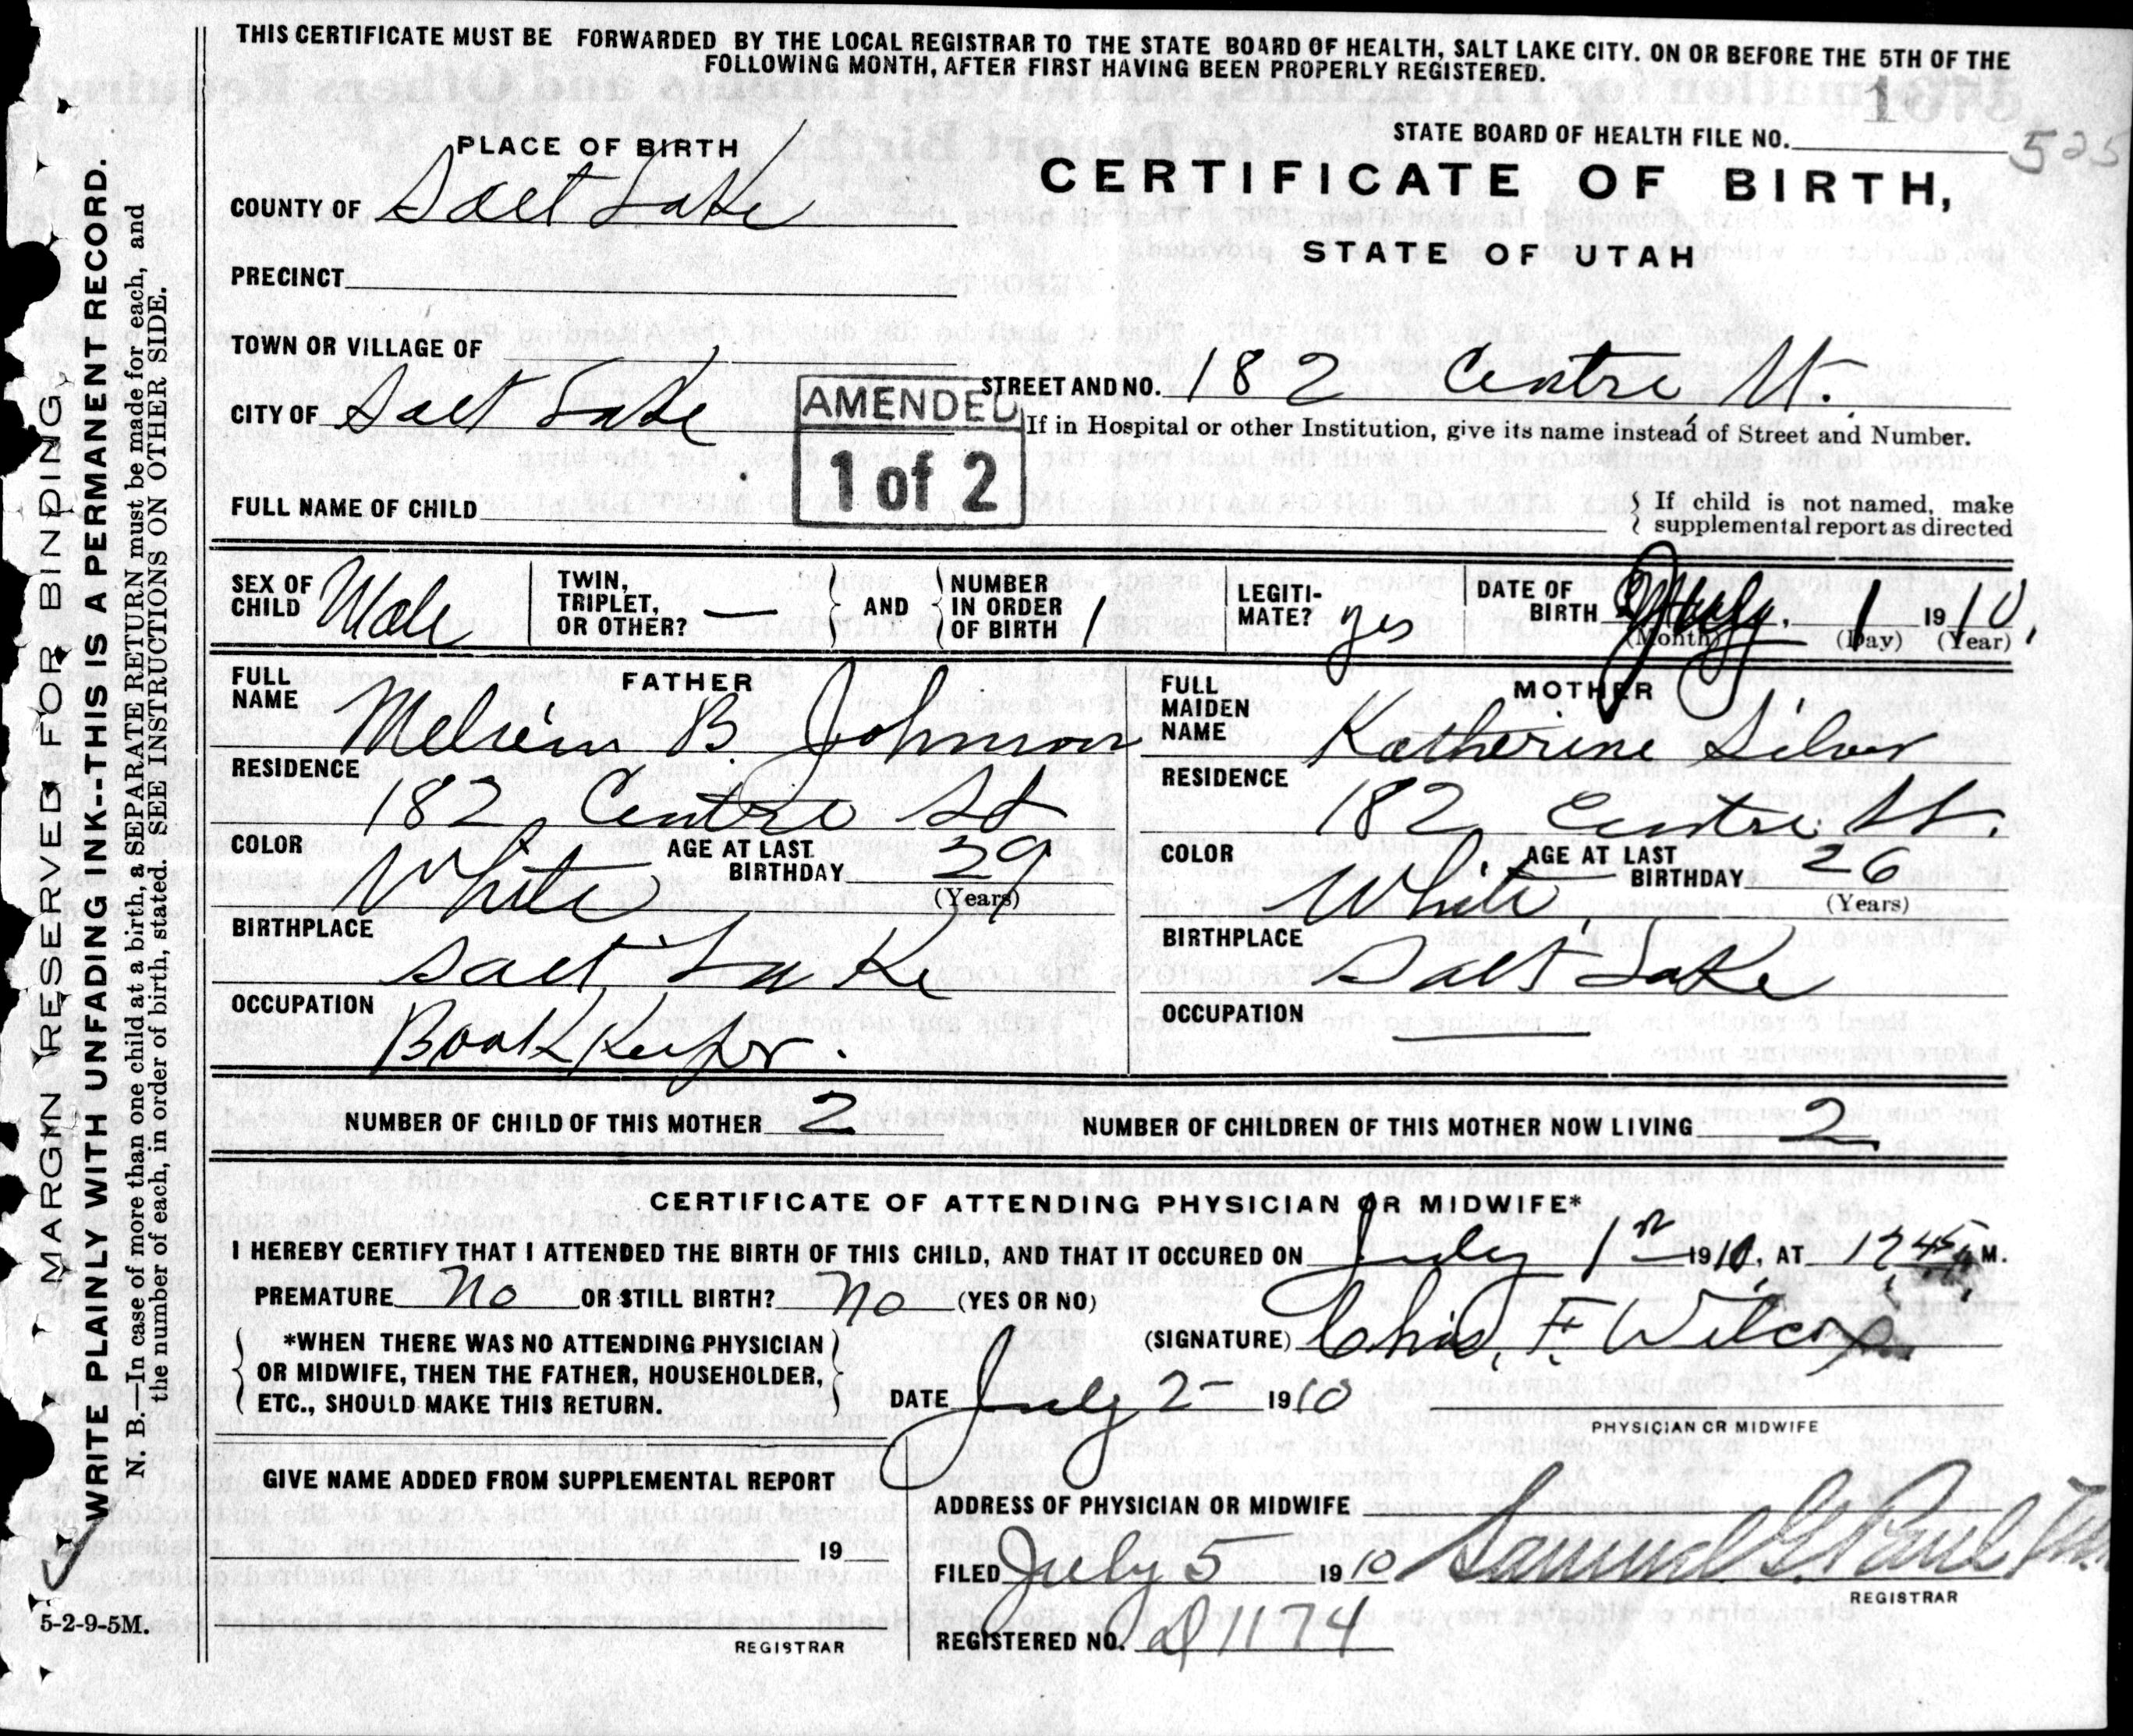 THIS CERTIFICATE MUST BE FORWARDED BY THE LOCAL REGISTRAR TO THE STATE BOARD OF HEALTH, SALT LAKE CITY. ON OR BEFORE THE 5TH OF THE
FOLLOWING MONTH, AFTER FIRST HAVING BEEN PROPERLY REGISTERED.
STATE BOARD OF HEALTH FILE NO. 525
PLACE OF BIRTH
CERTIFICATE OF BIRTH,
STATE OF UTAH
COUNTY OF Salt Lake
PRECINCT
TOWN OR VILLAGE OF
CITY OF Salt Lake
STREET AND NO. 182 Centre St.
If in Hospital or other Institution, give its name instead of Street and Number.
AMENDED
1 of 2
FULL NAME OF CHILD
If child is not named, make
supplemental report as directed
SEX OF CHILD Male
TWIN, TRIPLET, OR OTHER? —
AND
NUMBER IN ORDER OF BIRTH 1
LEGITIMATE? yes
DATE OF BIRTH July 1 1910,
(Month) (Day) (Year)
FATHER
FULL NAME B. Johnson
RESIDENCE 182 Centre St
COLOR White
AGE AT LAST BIRTHDAY 29
(Years)
BIRTHPLACE Salt Lake
OCCUPATION Book Keeper.
MOTHER
FULL MAIDEN NAME Katherine Silver
RESIDENCE 182 Centre St.
COLOR White
AGE AT LAST BIRTHDAY 26
(Years)
BIRTHPLACE Salt Lake
OCCUPATION —
NUMBER OF CHILD OF THIS MOTHER 2
NUMBER OF CHILDREN OF THIS MOTHER NOW LIVING 2
CERTIFICATE OF ATTENDING PHYSICIAN OR MIDWIFE*
I HEREBY CERTIFY THAT I ATTENDED THE BIRTH OF THIS CHILD, AND THAT IT OCCURED ON July 1st 1910, AT 12 45 M.
PREMATURE No OR STILL BIRTH? No (YES OR NO)
*WHEN THERE WAS NO ATTENDING PHYSICIAN
OR MIDWIFE, THEN THE FATHER, HOUSEHOLDER,
ETC., SHOULD MAKE THIS RETURN.
(SIGNATURE) Chas. F. Wilcox
DATE July 2 — 1910
PHYSICIAN OR MIDWIFE
GIVE NAME ADDED FROM SUPPLEMENTAL REPORT
19
REGISTRAR
ADDRESS OF PHYSICIAN OR MIDWIFE
FILED July 5 1910 Samuel G. Paul
REGISTRAR
REGISTERED NO. D1174
MARGIN RESERVED FOR BINDING
WRITE PLAINLY WITH UNFADING INK--THIS IS A PERMANENT RECORD.
N. B.—In case of more than one child at a birth, a SEPARATE RETURN must be made for each, and
the number of each, in order of birth, stated. SEE INSTRUCTIONS ON OTHER SIDE.
5-2-9-5M.